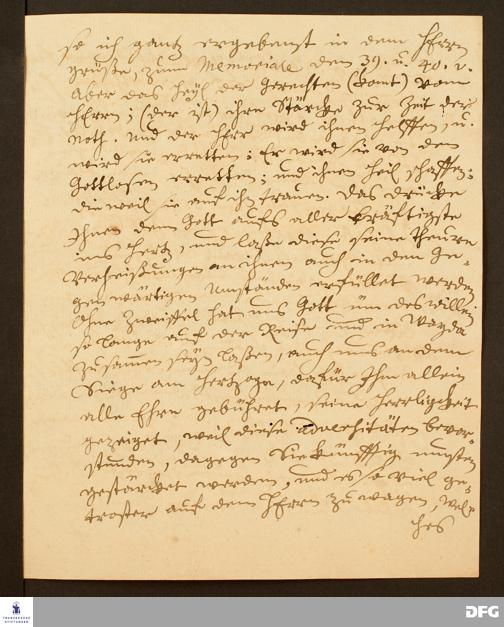 so ich gantz ergebenst in dem HErrn
grüße, zum Memoriale den 39. u. 40. v.
Aber das Heyl der Gerechten (komt) vom
HErrn; (der ist) ihre Stärcke zur Zeit der
Noth. Und der HErr wird ihnen helffen, u.
wird sie erretten; Er wird sie von den
Gottlosen erretten; und ihnen Heil schaffen;
dieweil sie auf ihn trauen. Das drücke
Ihnen denn Gott aufs aller kräftigste
ins Hertz, und laße diese seine theure
Verheißungen an ihnen auch in den ge-
genwärtigen Umständen erfüllet werden
Ohne Zweiffel hat uns Gott um des willen
so lange auf der Reise und in Wayda
zusammen seyn laßen, auch uns an dem
Siege am Hertzoge, dafür Ihm allein
alle Ehre gebühret, seine Herrligkeit
gezeiget, weil diese Adversitäten bevor-
stunden, dagegen Sie künfftig musten
gestärcket werden, und es so viel ge-
troster auf den HErrn zu wagen, wel-
ches
FRANCKESCHE
STIFTUNGEN
DFG